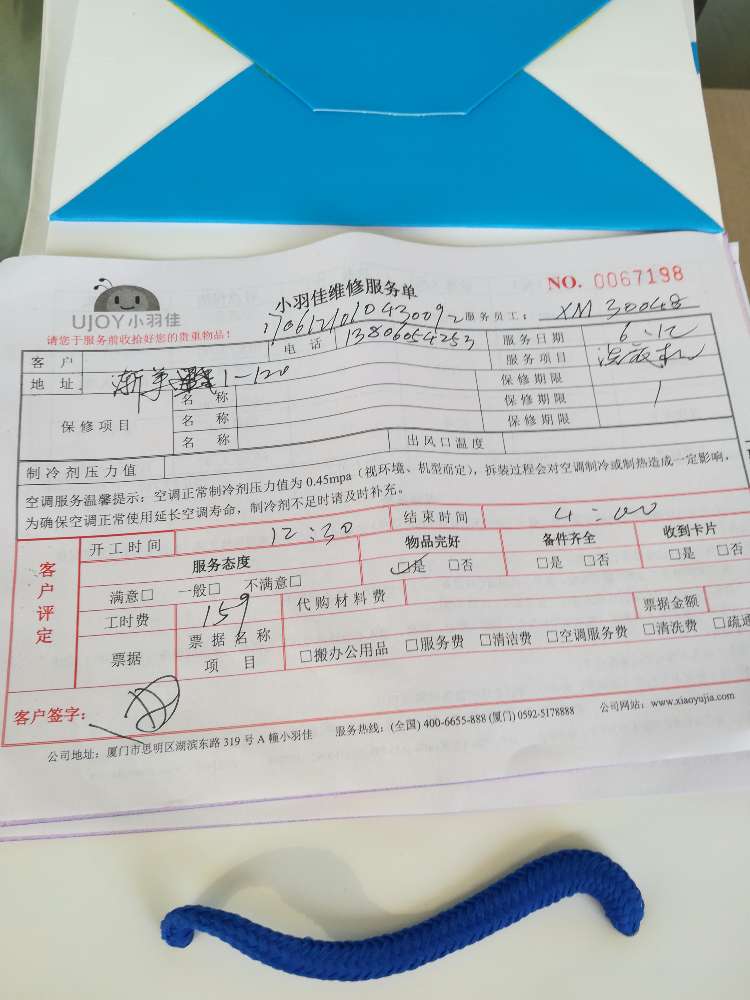 UJOY小羽佳
小羽佳维修服务单
NO. 0067198
请您于服务前收拾好您的贵重物品！
服务员工： XM 30048
客 户 电 话 13806054253 服务日期 6.12
地 址 1-120 服务项目
保修项目 名 称 保修期限
名 称 保修期限 1
名 称 保修期限
制冷剂压力值 出风口温度
空调服务温馨提示：空调正常制冷剂压力值为 0.45mpa（视环境、机型而定），拆装过程会对空调制冷或制热造成一定影响，
为确保空调正常使用延长空调寿命，制冷剂不足时请及时补充。
客户评定 开工时间 12:30 结束时间 4:00
服务态度 物品完好 备件齐全 收到卡片
满意□ 一般□ 不满意□ □是 □否 □是 □否 □是 □否
工时费 159 代购材料费
票据 票据名称 票据金额
项 目 □搬办公用品 □服务费 □清洁费 □空调服务费 □清洗费 □疏通
客户签字：
公司地址：厦门市思明区湖滨东路 319 号 A 幢小羽佳 服务热线：(全国) 400-6655-888 (厦门) 0592-5178888 公司网站：www.xiaoyujia.com